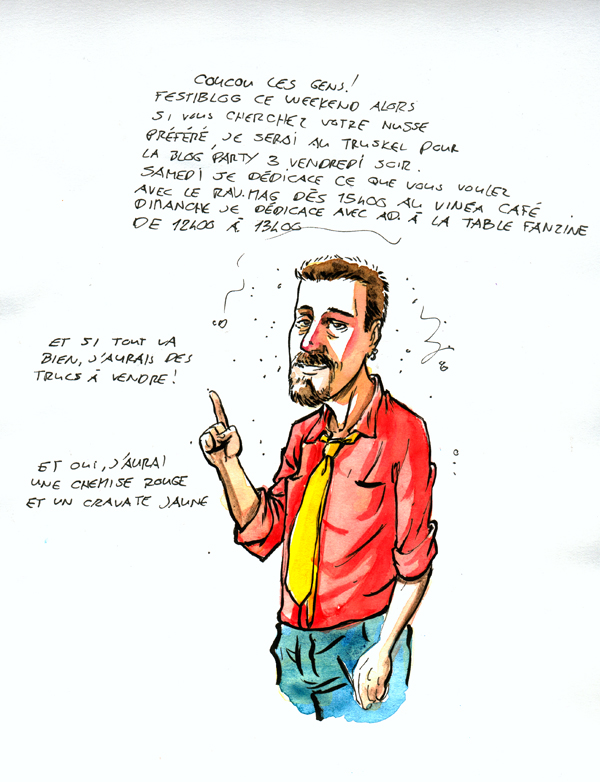 COUCOU LES GENS!
FESTIBLOG CE WEEKEND ALORS
SI VOUS CHERCHEZ VOTRE NUSSE
PRÉFÉRÉ, JE SERAI AU TRUSKEL POUR
LA BLOG PARTY 3 VENDREDI SOIR.
SAMEDI JE DÉDICACE CE QUE VOUS VOULEZ
AVEC LE RAV.MAG DÈS 15H00 AU VINEA CAFÉ.
DIMANCHE JE DÉDICACE AVEC AD. À LA TABLE FANZINE
DE 12H00 À 13H00
ET SI TOUT VA
BIEN, J'AURAIS DES
TRUCS À VENDRE!
ET OUI, J'AURAI
UNE CHEMISE ROUGE
ET UN CRAVATE JAUNE